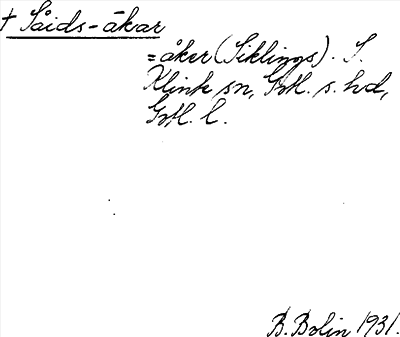 † Såids-åkar
= åker (Siklings). S.
Klinte sn, Gotl. s. hd,
Gotl. l.
B. Bolin 1931.